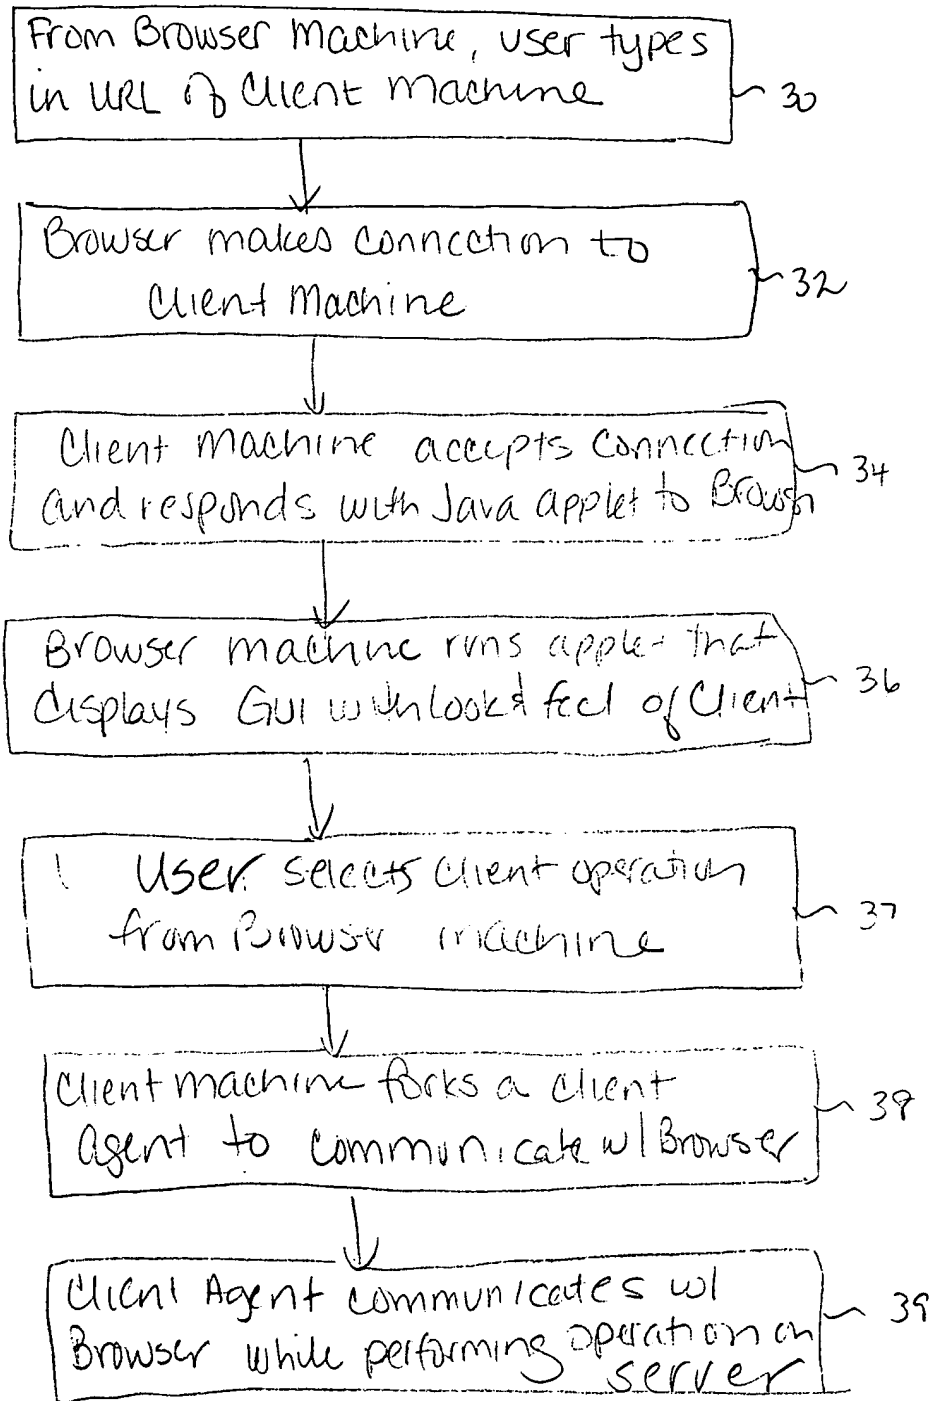 From Browser Machine, user types
in URL of Client Machine
30
Browser makes connection to
Client Machine
32
Client Machine accepts connection
and responds with Java applet to Browsr
34
Browser machine runs applet that
displays GUI with look & feel of Client
36
User selects client operation
from Browser machine
37
Client machine forks a client
Agent to communicate w/ Browser
38
Client Agent communicates w/
Browser while performing operation on
server
39